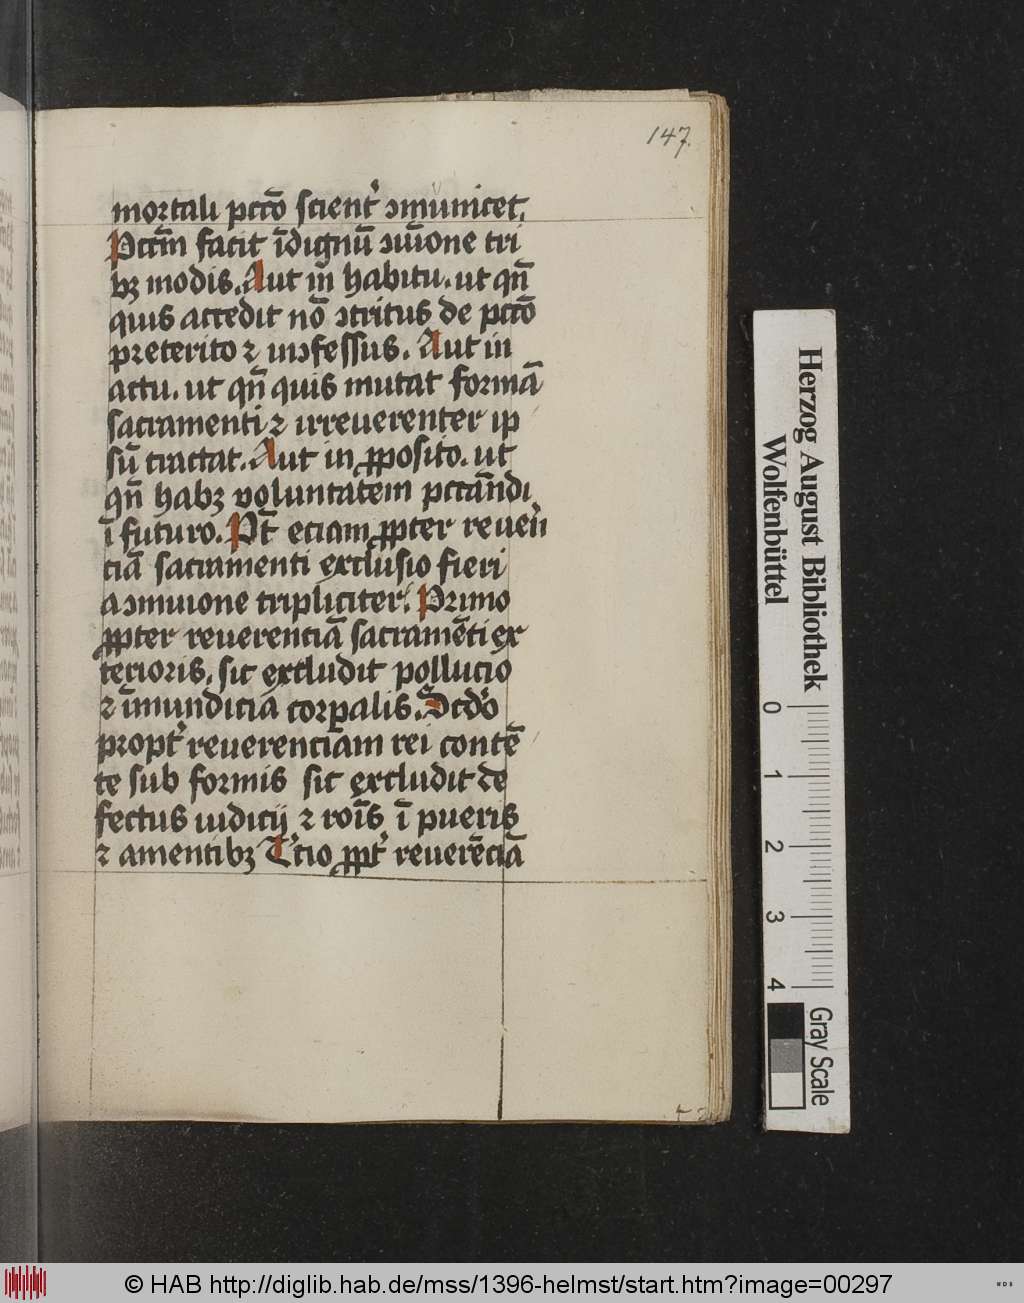 147.
mortali pctō scient᷑ ꝯmūnicet.
Pctm̄ facit īdignū ꝯiūione tri
bꝫ modis. Aut in̄ habitu. ut qn̄
quis accedit nō ꝯtritus de pctō
preterito ꝛ inꝯfessus. Aut in
actu. ut qn̄ quis mutat formā
sacramenti ꝛ irreuerenter ip
sū tractat. Aut in ꝓposito. ut
qn̄ habꝫ voluntatem pctān̄di
ī futuro. Pt̄ eciam ꝓpter reueri᷑
ciā sacramenti exclusio fieri
a ꝯmuione tripliciter. Primo
ꝓpter reuerenciā sacramēti ex
terioris. sic excludit pollucio
ꝛ īmundicia corꝑalis. Scdo᷑
propt᷑ reuerenciam rei contē
te sub formis sic excludit de
fectus iudicij ꝛ roīs ī pueris
ꝛ amentibꝫ T᷑cio ꝓpt᷑ reuerēciā
Herzog August Bibliothek
Wolfenbüttel
0 1 2 3 4
Gray Scale
© HAB http://diglib.hab.de/mss/1396-helmst/start.htm?image=00297